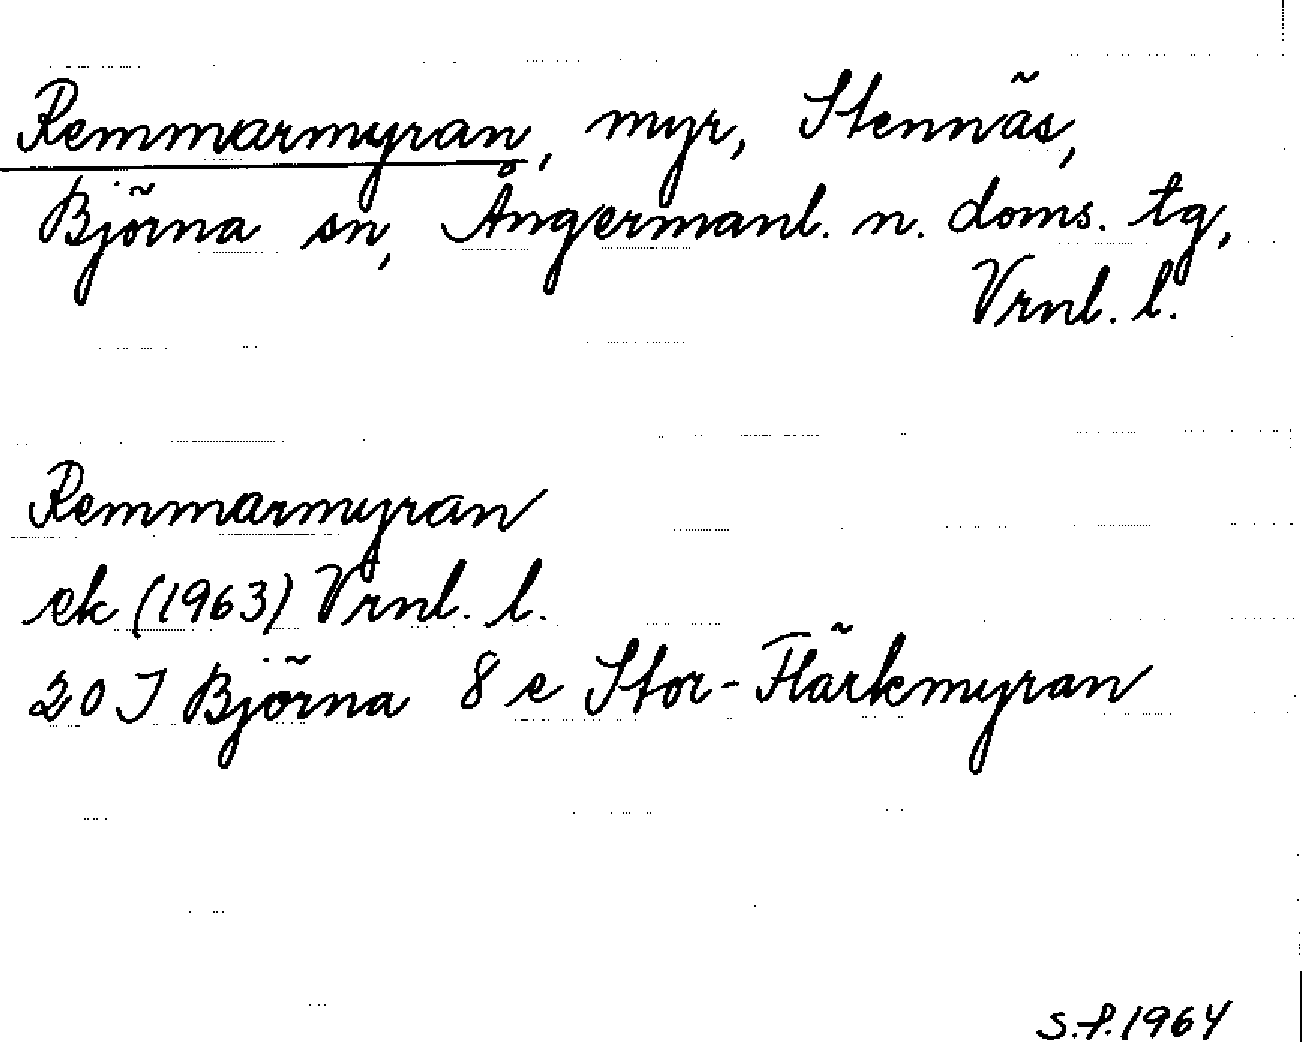 Remmarmyran, myr, Stennäs,
Björna sn, Ångermanl. n. doms. tg,
Vrnl. l.
Remmarmyran
ek (1963) Vrnl. l.
20 J Björna 8 e Stor-Flärkmyran
S.f. 1964